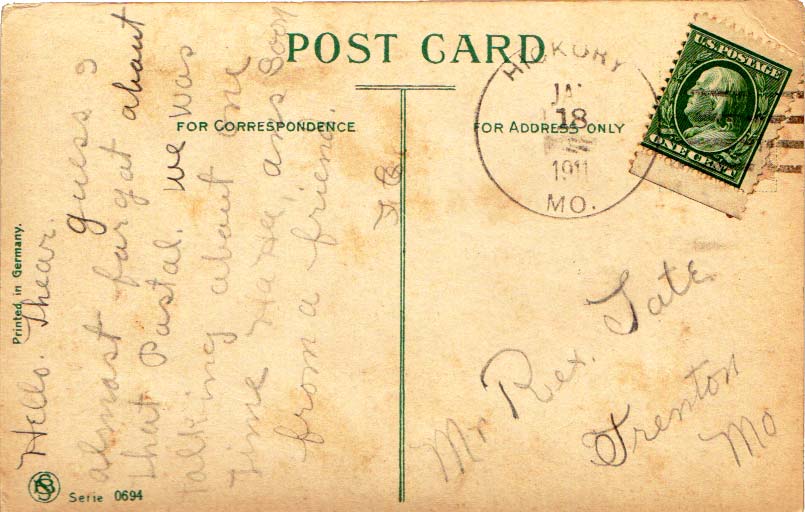 POST CARD
FOR CORRESPONDENCE
FOR ADDRESS ONLY
Printed in Germany.
Serie 0694
U.S. POSTAGE
ONE CENT
HICKORY
JAN
18
1911
MO.
Hello. Thear.
guess I
almast forgat about
that Pastal. we was
talking about one
time Ha Ha, ans Soon
from a friend.
Mr Rex. Tate
Trenton
Mo